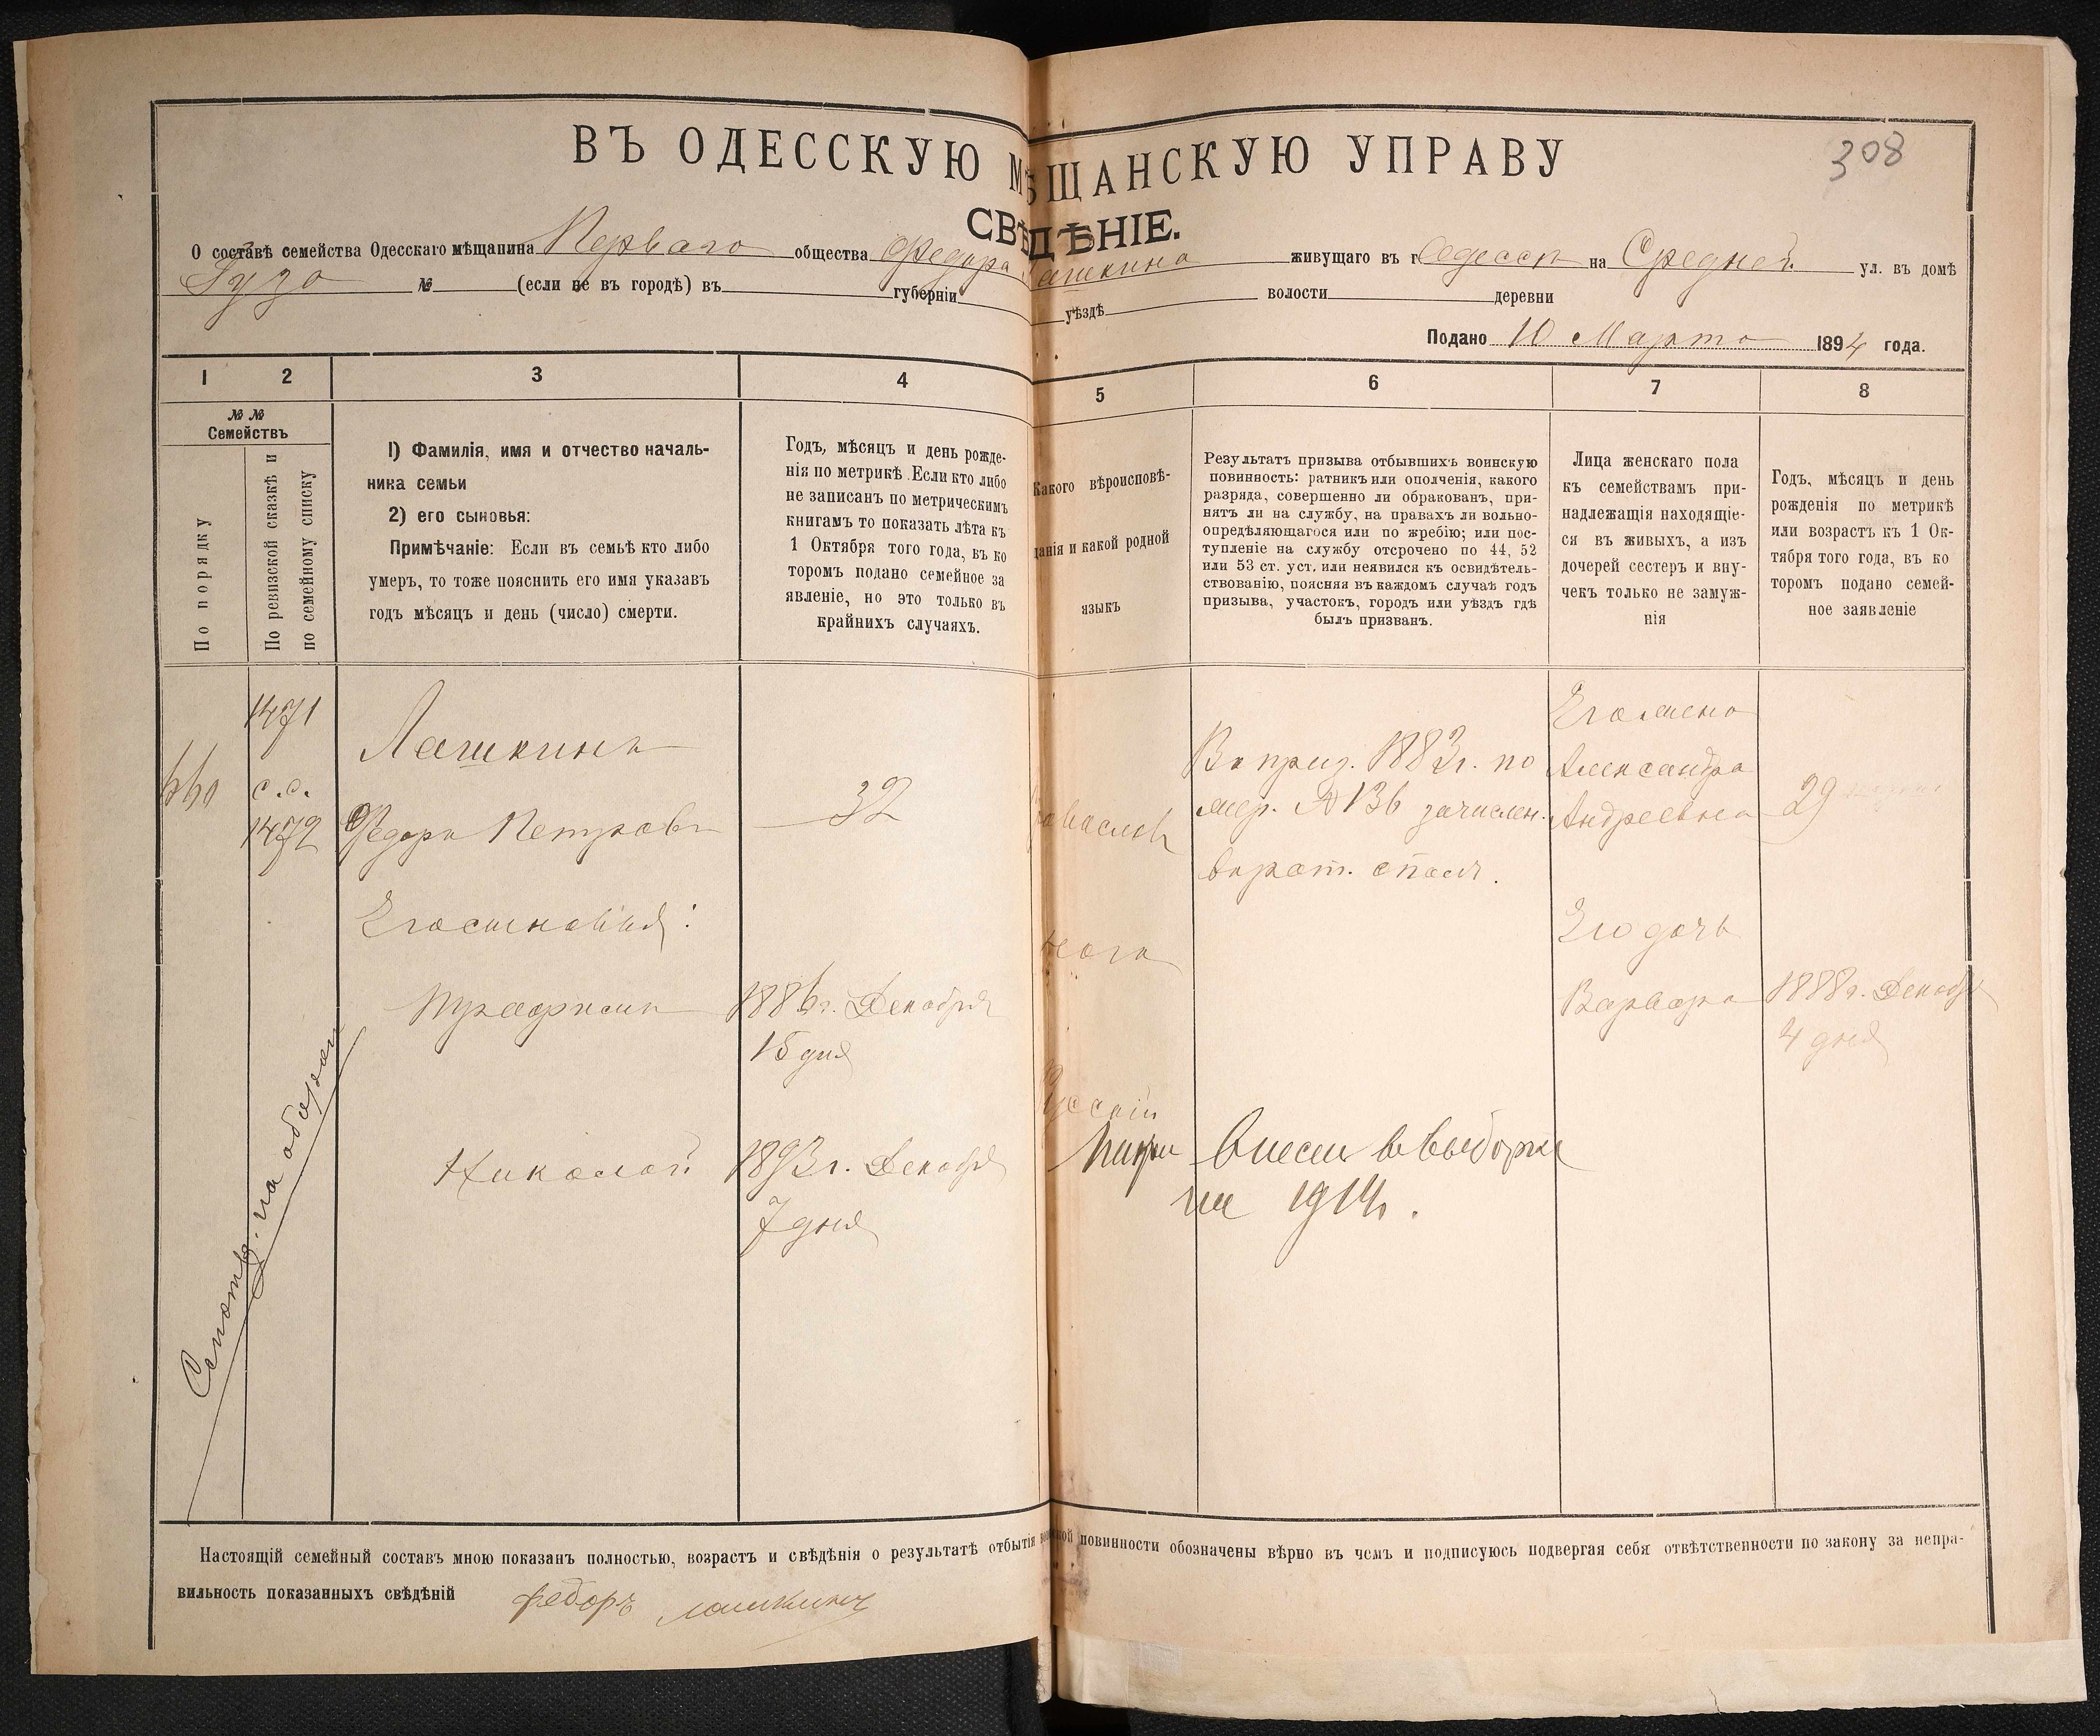 308
ВЪ ОДЕССКУЮ МѢЩАНСКУЮ УПРАВУ
СВѢДѢНІЕ.
О составѣ семейства Одесскаго мѣщанина Перваго общества Федора Лашкина живущаго въ г Одессѣ на Средней ул. въ домѣ
Гузо № (если не въ городѣ) въ губерніи уѣздѣ волости деревни
Подано 10 Марта 1894 года.
1 2 3 4 5 6 7 8
№ №
Семействъ
По порядку
По ревизской сказкѣ и
по семейному списку
1) Фамилія, имя и отчество началь-
ника семьи
2) его сыновья:
Примѣчаніе: Если въ семьѣ кто либо
умеръ, то тоже пояснить его имя указавъ
годъ мѣсяцъ и день (число) смерти.
Годъ, мѣсяцъ и день рожде-
нія по метрикѣ. Если кто либо
не записанъ по метрическимъ
книгамъ то показать лѣта къ
1 Октября того года, въ ко
торомъ подано семейное за
явленіе, но это только въ
крайнихъ случаяхъ.
Какого вѣроисповѣ-
данія и какой родной
языкъ
Результатъ призыва отбывшихъ воинскую
повинность: ратникъ или ополченія, какого
разряда, совершенно ли обракованъ, при-
нятъ ли на службу, на правахъ ли вольно-
опредѣляющагося или по жребію; или пос-
тупленіе на службу отсрочено по 44, 52
или 53 ст. уст. или неявился къ освидѣтель-
ствованію, поясняя въ каждомъ случаѣ годъ
призыва, участокъ, городъ или уѣздъ гдѣ
былъ призванъ.
Лица женскаго пола
къ семействамъ при-
надлежащія находящіе-
ся въ живыхъ, а изъ
дочерей сестеръ и вну-
чекъ только не замуж-
нія
Годъ, мѣсяцъ и день
рожденія по метрикѣ
или возрастъ къ 1 Ок-
тября того года, въ ко
торомъ подано семей-
ное заявленіе
1471
с.с.
1472
Лашкинъ
Федоръ Петровъ
32
Православ
наго
Русскій
Въ приз. 1883г. по
жер. № 136 зачислен.
въ рат. опол.
Его жена
Александра
Андреевна
29
Его сыновья:
Трафимъ
1886г. Декабря
15 дня
Его дочь
Варвара
1888г. Декабр
4 дня
Николай
1893г. Декабря
7 дня
внесен в выборки
на 1914.
Смотр. на оборот
Настоящій семейный составъ мною показанъ полностью, возрастъ и свѣдѣнія о результатѣ отбытія воинской повинности обозначены вѣрно въ чемъ и подписуюсь подвергая себя отвѣтственности по закону за непра-
вильность показанныхъ свѣдѣній федоръ лашкинъ